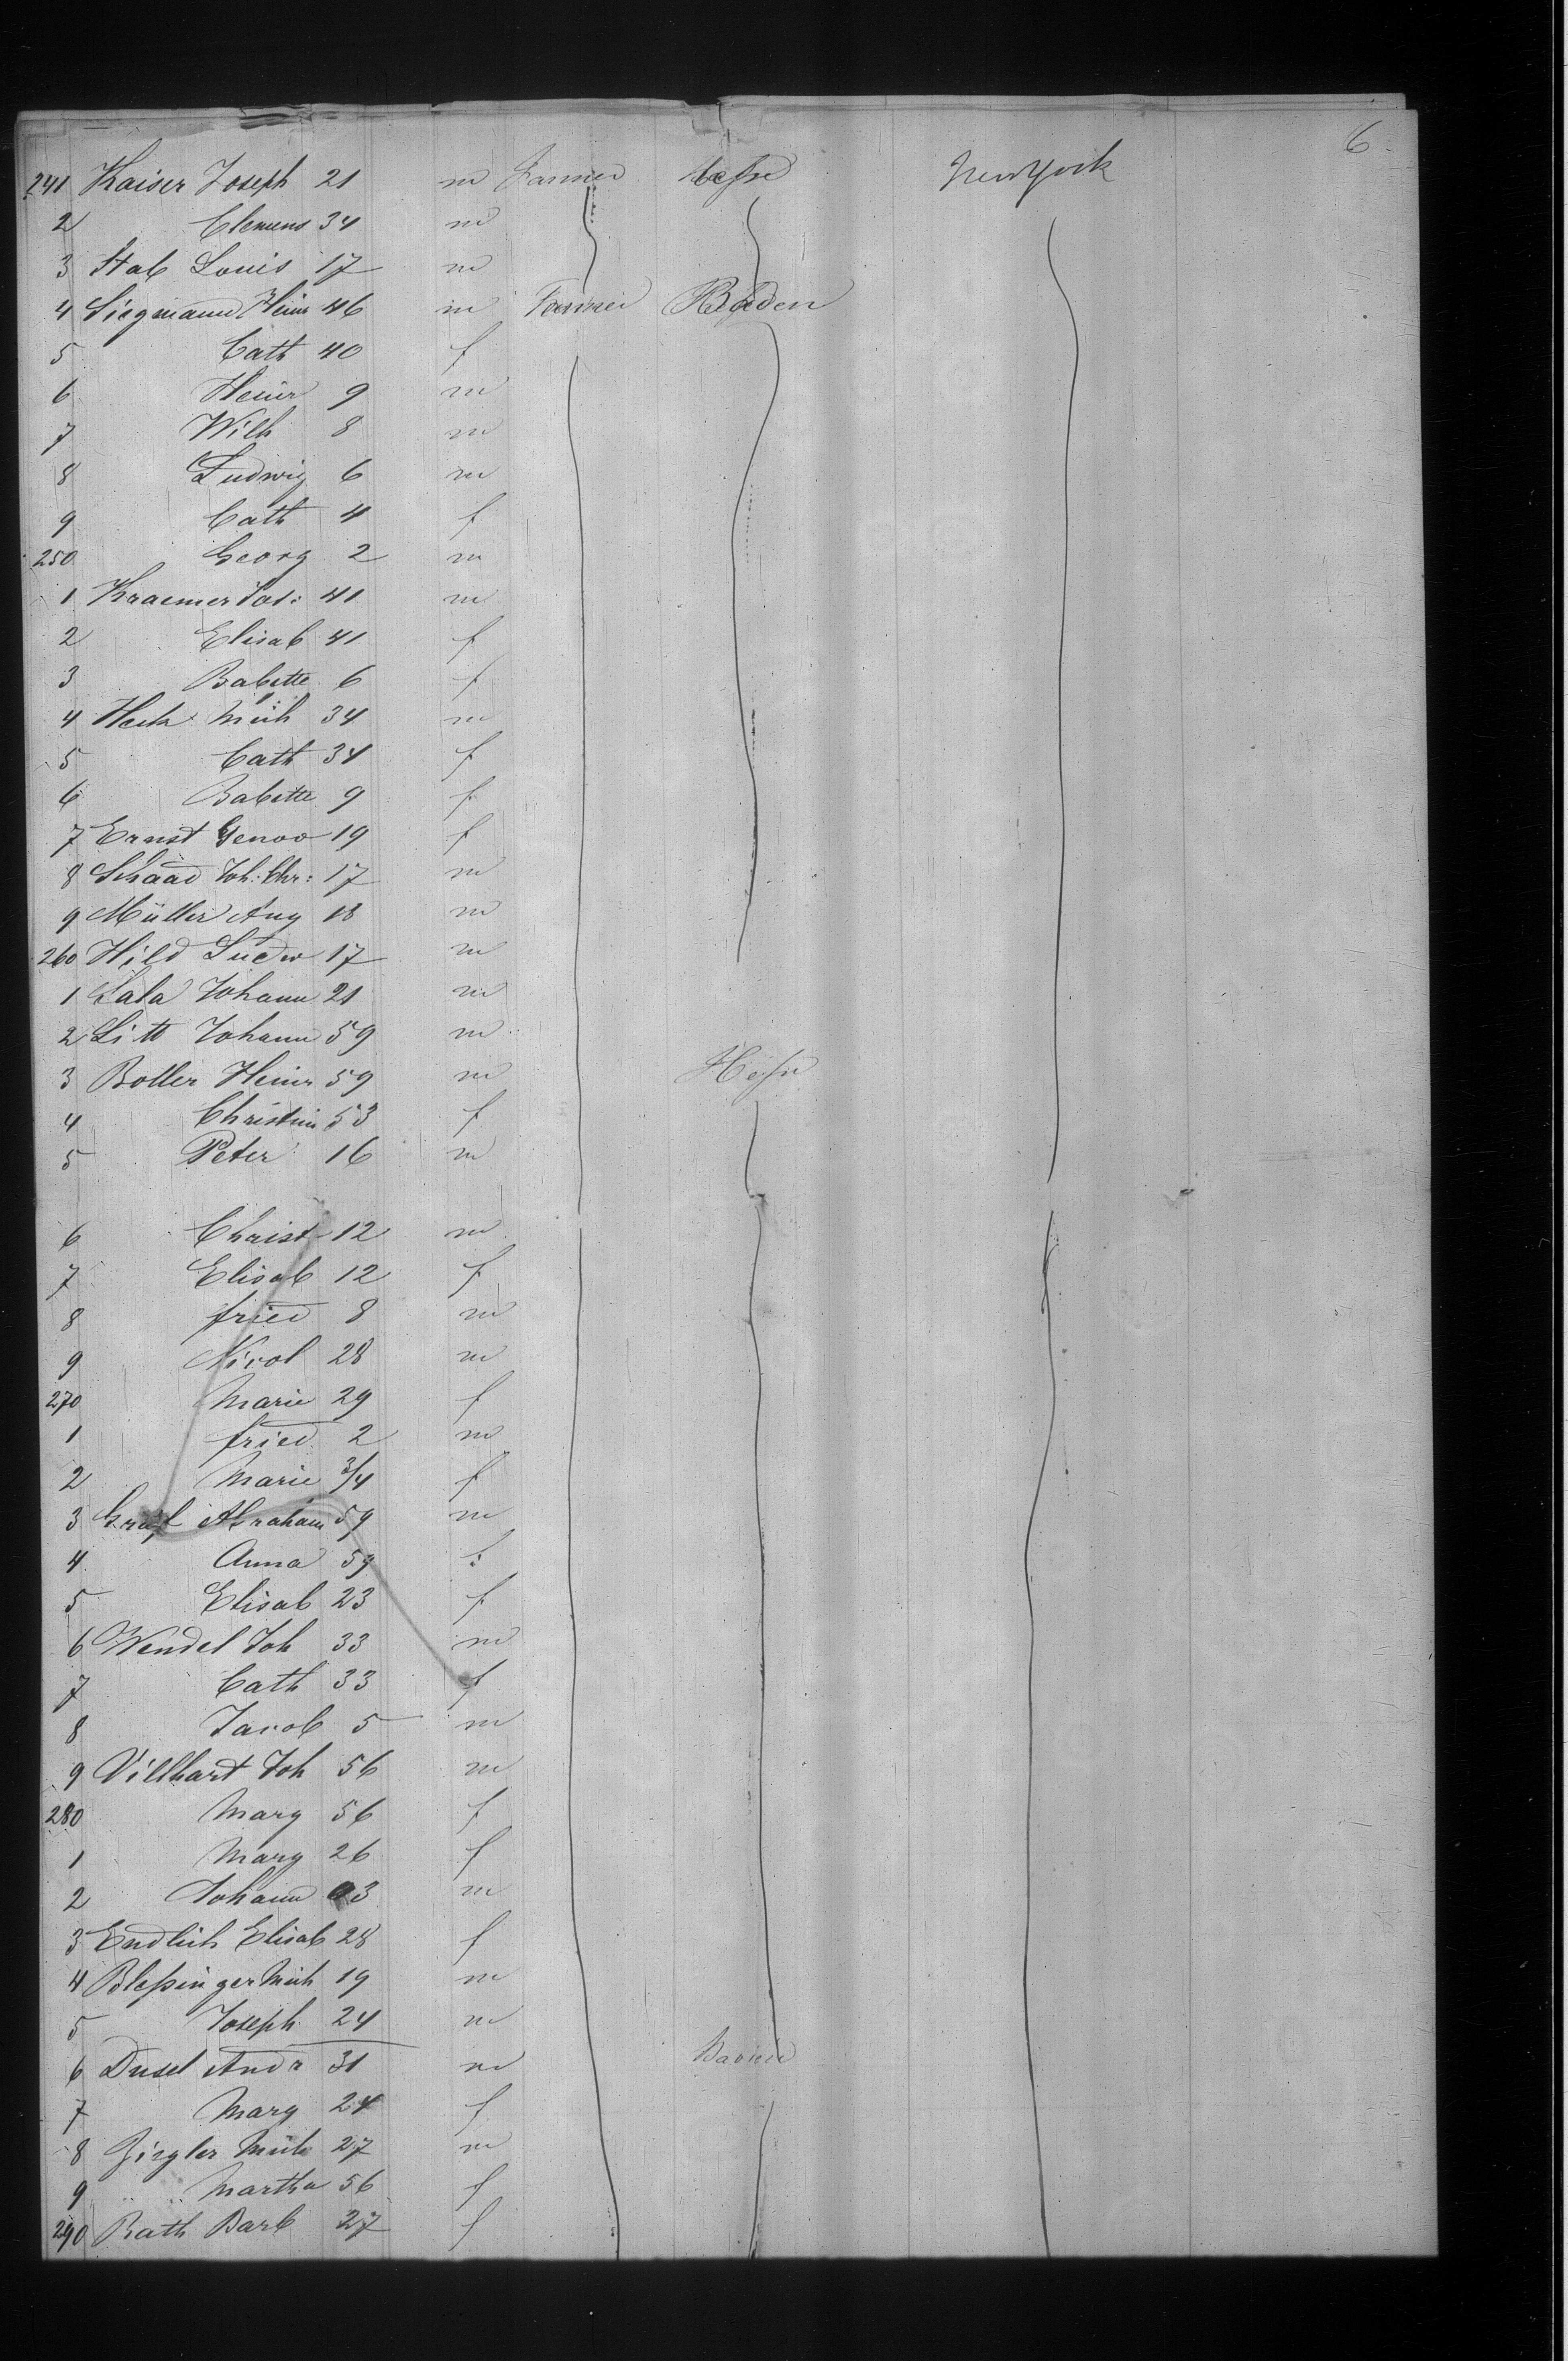 6.
241 Kaiser Joseph 21 m Farmer Hesse New York
2 Clemens 34 m
3 Stab Louis 17 m
4 Siegmann Heinr 46 m Farmer Baden
5 Cath 40 f
6 Heinr 9 m
7 Wilh 8 m
8 Ludwig 6 m
9 Cath 4 f
250 Georg 2 m
1 Kraemer Jos: 41 m
2 Elisab 41 f
3 Babette 6 f
4 Heck Mich 34 m
5 Cath 34 f
6 Babette 9 f
7 Ernst Genov 19 f
8 Schaad Joh: Chr: 17 m
9 Müller Aug 18 m
260 Hild Ludw 17 m
1 Lala Johann 21 m
2 Litt Johann 59 m
3 Boller Heinr 59 m Hesse
4 Christin 53 f
5 Peter 16 m
6 Christ 12 m
7 Elisab 12 f
8 fried 8 m
9 Nicol 28 m
270 Marie 29 f
1 fried 2 m
2 Marie 3/4 f
3 Graf Abraham 59 m
4 Anna 59 f
5 Elisab 23 f
6 Wendel Joh 33 m
7 Cath 33 f
8 Jacob 5 m
9 Villhart Joh 56 m
280 Marg 56 f
1 Marg 26 f
2 Johann 3 m
3 Endlich Elisab 28 f
4 Bleßinger Mich 19 m
5 Joseph 24 m
6 Dusel Andr 31 m Baviere
7 Marg 24 f
8 Ziegler Mich 27 m
9 " " Martha 56 f
290 Rath Barb 27 f